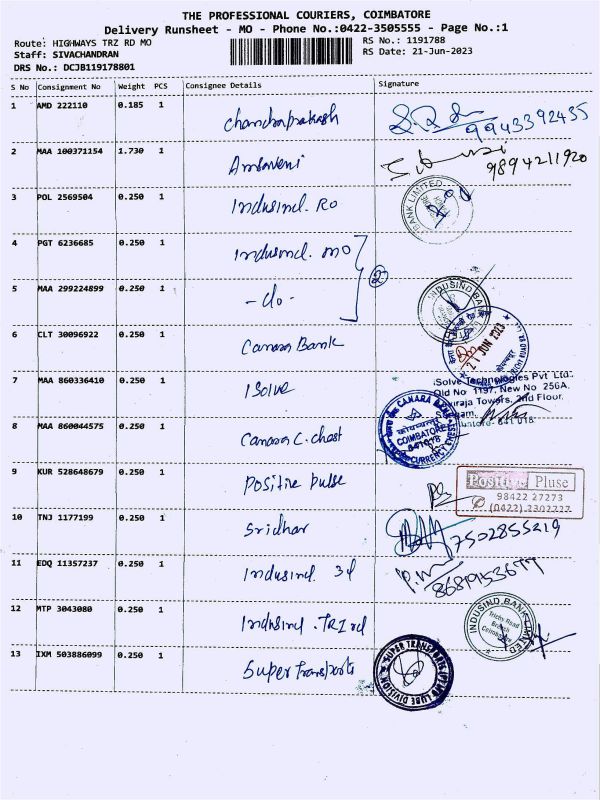 THE PROFESSIONAL COURIERS, COIMBATORE
Delivery Runsheet - MO - Phone No.:0422-3505555 - Page No.:1
Route: HIGHWAYS TRZ RD MO
RS No.: 1191788
Staff: SIVACHANDRAN
RS Date: 21-Jun-2023
DRS No.: DCJB119178801
S No Consignment No Weight PCS Consignee Details Signature
1 AMD 222110 0.185 1 Chandraprakash 9943392435
2 MAA 100371154 1.730 1 9894211920
3 POL 2569504 0.250 1 Indusind. RO
BANK LIMITED
4 PGT 6236685 0.250 1 Indusind. MO
2
5 MAA 299224899 0.250 1 -do-
INDUSIND BANK
6 CLT 30096922 0.250 1 Canara Bank
21 JUN 2023
7 MAA 860336410 0.250 1 ISolve
iSolve Technologies Pvt Ltd.,
Old No 1197, New No 256A,
Towers, 2nd Floor,
641 018
8 MAA 860044575 0.250 1 Canara C. chest
CANARA BANK
COIMBATORE
641018
CURRENCY CHEST
9 KUR 528648679 0.250 1 Positive pulse
Positive Pluse
98422 27273
(0422) 2302227
10 TNJ 1177199 0.250 1 Sridhar 7502855219
11 EDQ 11357237 0.250 1 Indusind 3d
12 MTP 3043080 0.250 1 Indusind .TRZ rd
INDUSIND BANK LIMITED
Trichy Road
Branch
Coimbatore
13 IXM 503886099 0.250 1 Super Transports
SUPER TRANSPORTS (P) LTD
LUBE DIVISION